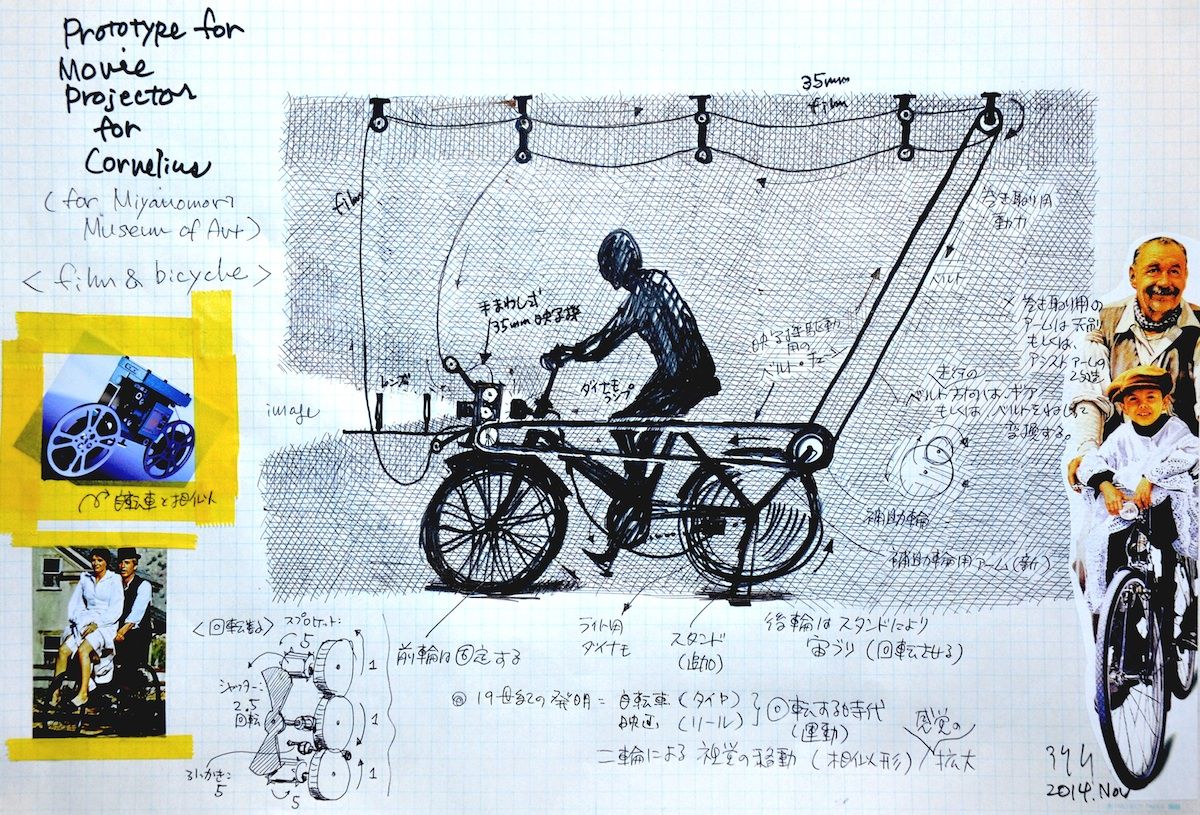 Prototype for
Movie
Projector
for
Cornelius
(for Miyanomori
Museum of Art)
<film & bicycle>
自転車と相似
35mm
film
film
手まわし式
35mm映写機
レンズ
image
ダイナモ
ランプ
映写機駆動
用の
ベルト・チェーン
巻き取り用
動力
ベルト
※巻き取り用の
アームは天吊
もしくは、
アシストアームの
走行の
ベルト方向は、ギア
もしくはベルトをねじって
変換する。
補助輪
補助輪用アーム(新)
前輪は固定する
ライト用
ダイナモ
スタンド
(追加)
後輪はスタンドにより
宙づり(回転させる)
<回転数>
スプロケット:
5
1
シャッター:
2.5
回転
1
かき:
5
5
1
◎19世紀の発明=自転車(タイヤ)
映画(リール)
回転する時代
(運動)
二輪による視覚の移動(相似形)
感覚の
拡大
2014.Nov